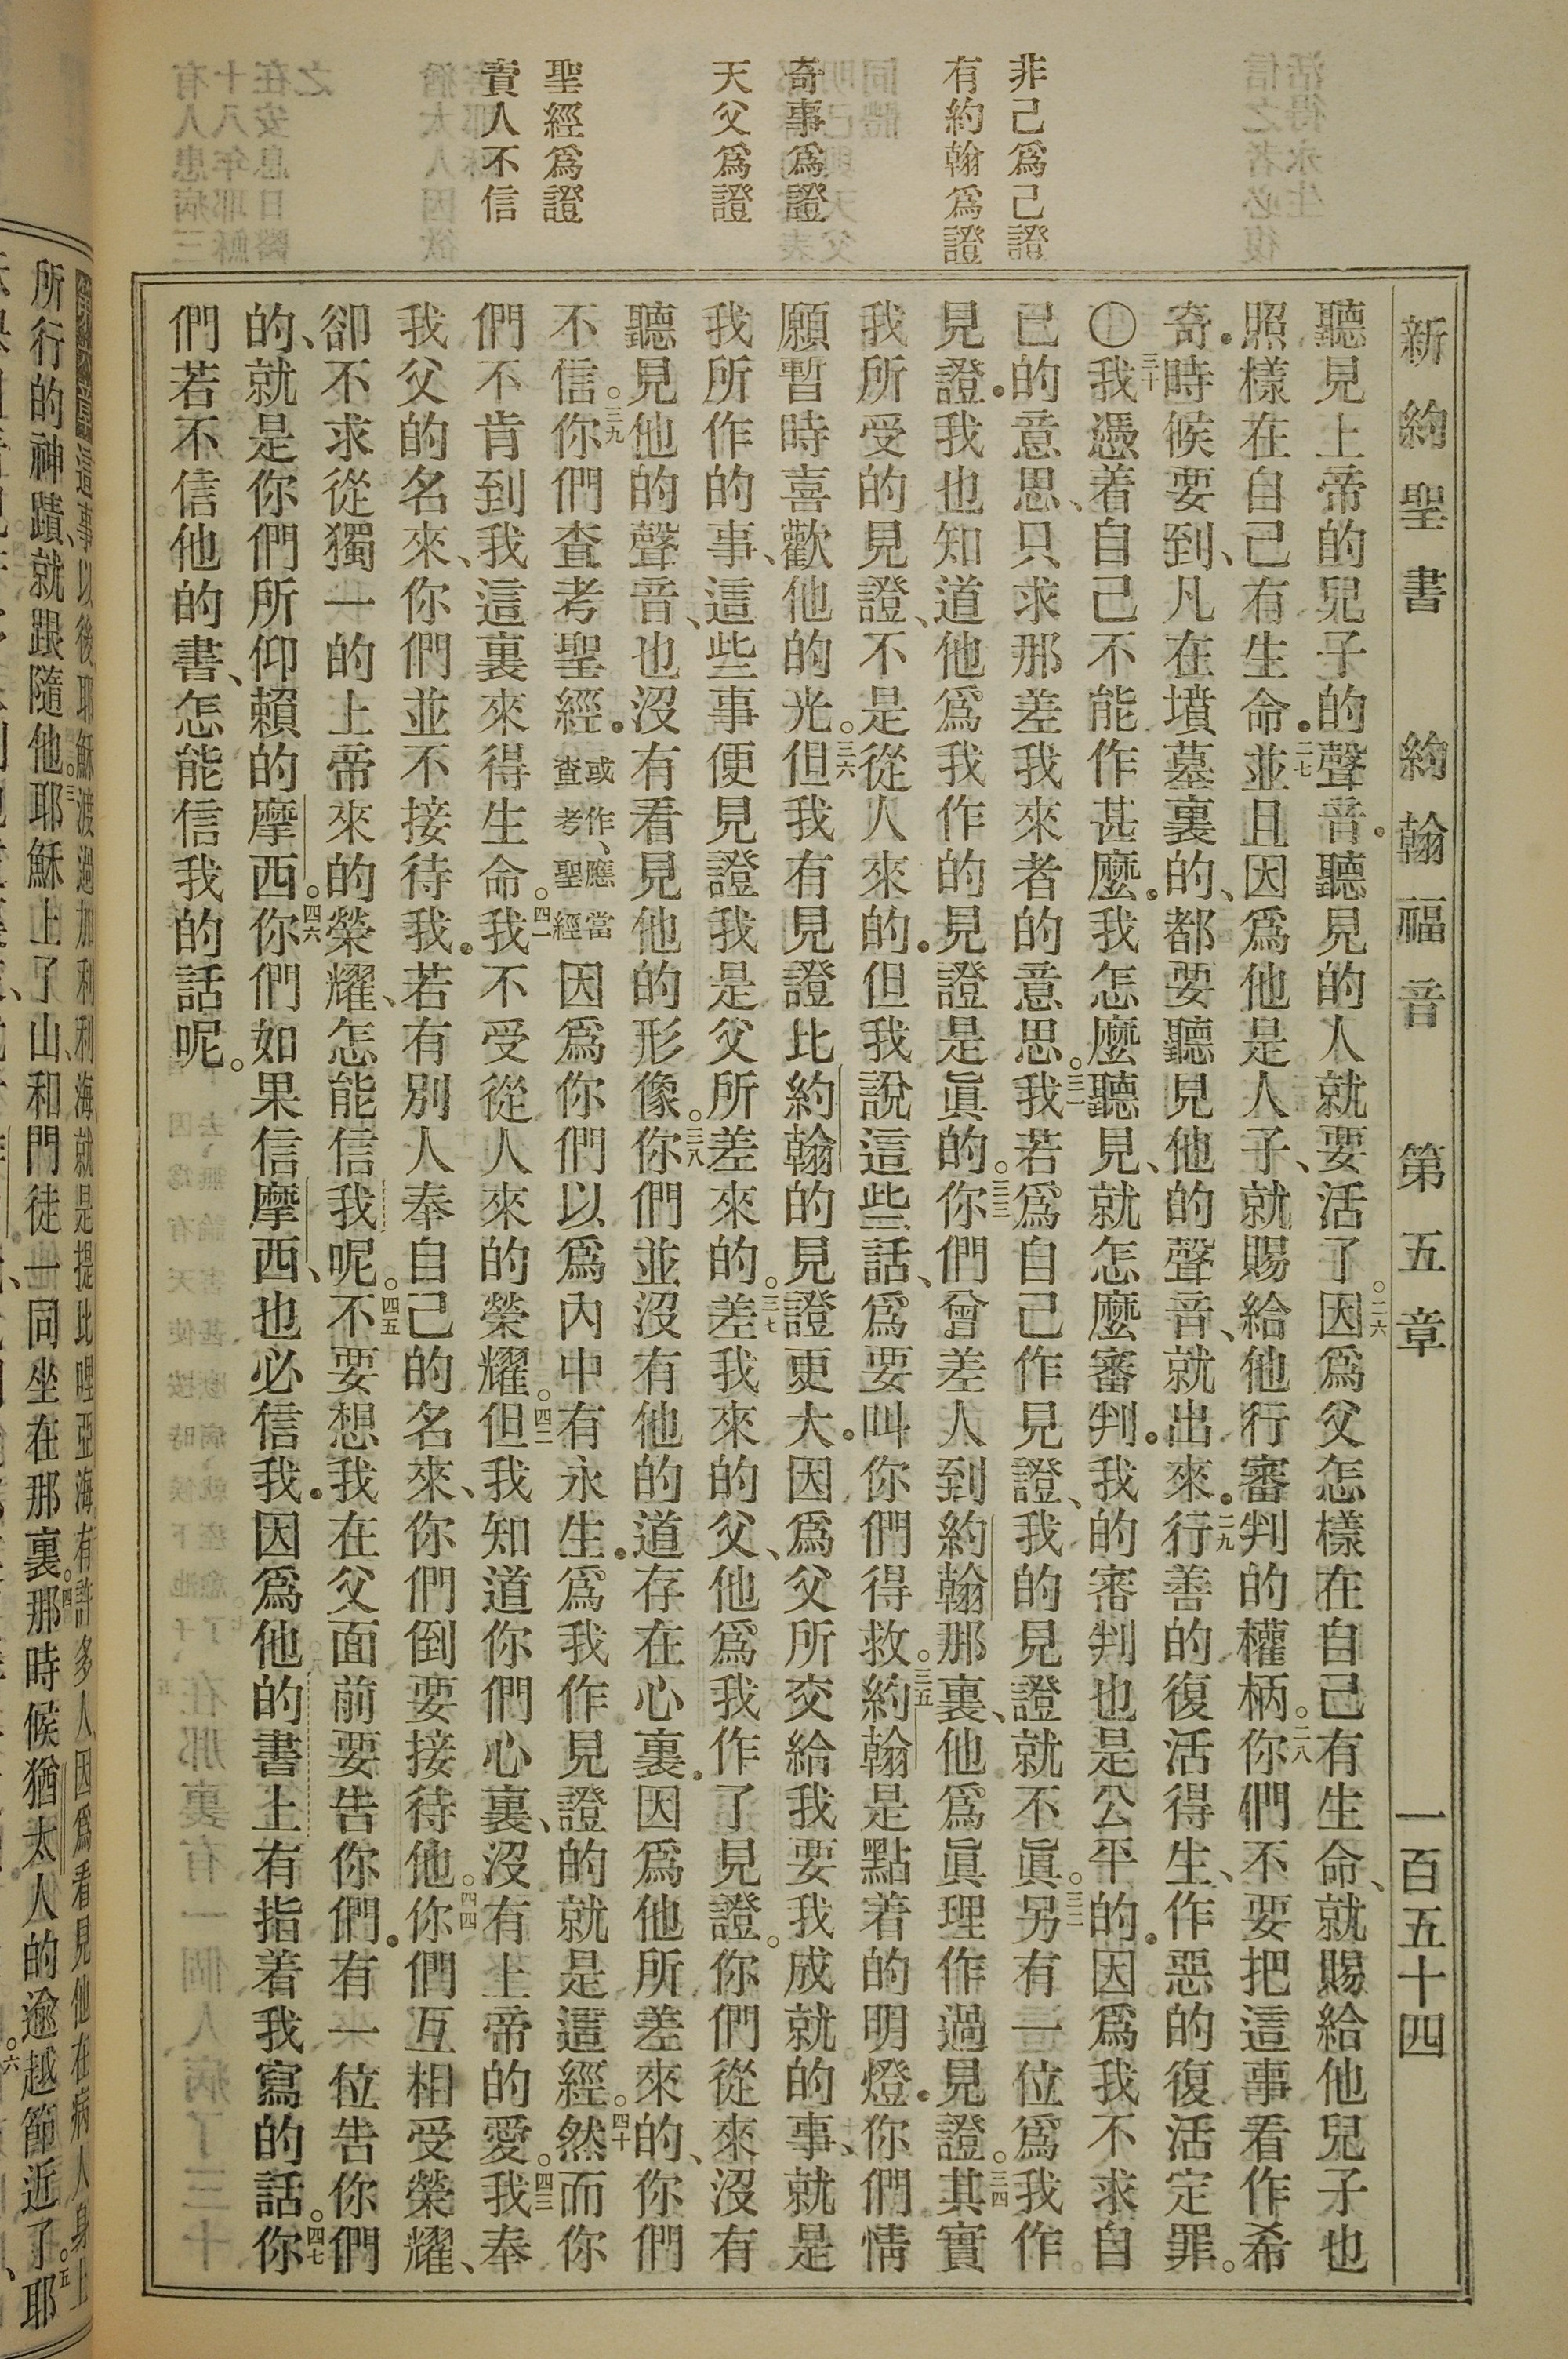 新約聖書 約翰福音 第五章 一百五十四
非己爲己證
有約翰爲證
奇事爲證
天父爲證
聖經爲證
責人不信
聽見上帝的兒子的聲音.聽見的人就要活了。二六因爲父怎樣在自己有生命、就賜給他兒子也
照樣在自己有生命.二七並且因爲他是人子、就賜給他行審判的權柄。二八你們不要把這事看作希
奇.時候要到、凡在墳墓裏的、都要聽見他的聲音、就出來.二九行善的復活得生、作惡的復活定罪。
〇三十我憑着自己不能作甚麼.我怎麼聽見、就怎麼審判.我的審判也是公平的.因爲我不求自
己的意思、只求那差我來者的意思。三一我若爲自己作見證、我的見證就不眞。三二另有一位爲我作
見證.我也知道他爲我作的見證是眞的。三三你們曾差人到約翰那裏、他爲眞理作過見證。三四其實
我所受的見證、不是從人來的.但我說這些話、爲要叫你們得救。三五約翰是點着的明燈.你們情
願暫時喜歡他的光。三六但我有見證比約翰的見證更大.因爲父所交給我要我成就的事、就是
我所作的事、這些事便見證我是父所差來的。三七差我來的父、他爲我作了見證。你們從來沒有
聽見他的聲音、也沒有看見他的形像。三八你們並沒有他的道存在心裏.因爲他所差來的、你們
不信。三九你們查考聖經.或作、應當查考聖經因爲你們以爲內中有永生.爲我作見證的就是這經。四十然而你
們不肯到我這裏來得生命。四一我不受從人來的榮耀。四二但我知道你們心裏、沒有上帝的愛。四三我奉
我父的名來、你們並不接待我.若有別人奉自己的名來、你們倒要接待他。四四你們互相受榮耀、
卻不求從獨一的上帝來的榮耀、怎能信我呢。四五不要想我在父面前要告你們.有一位告你們
的、就是你們所仰賴的摩西。四六你們如果信摩西、也必信我.因爲他的書上有指着我寫的話。四七你
們若不信他的書、怎能信我的話呢。
這事以後耶穌渡過加利利海就是提比哩亞海有許多人因爲看見他在病人身上
所行的神蹟、就跟隨他。三耶穌上了山、和門徒一同坐在那裏。四那時候猶太人的逾越節近了。五耶